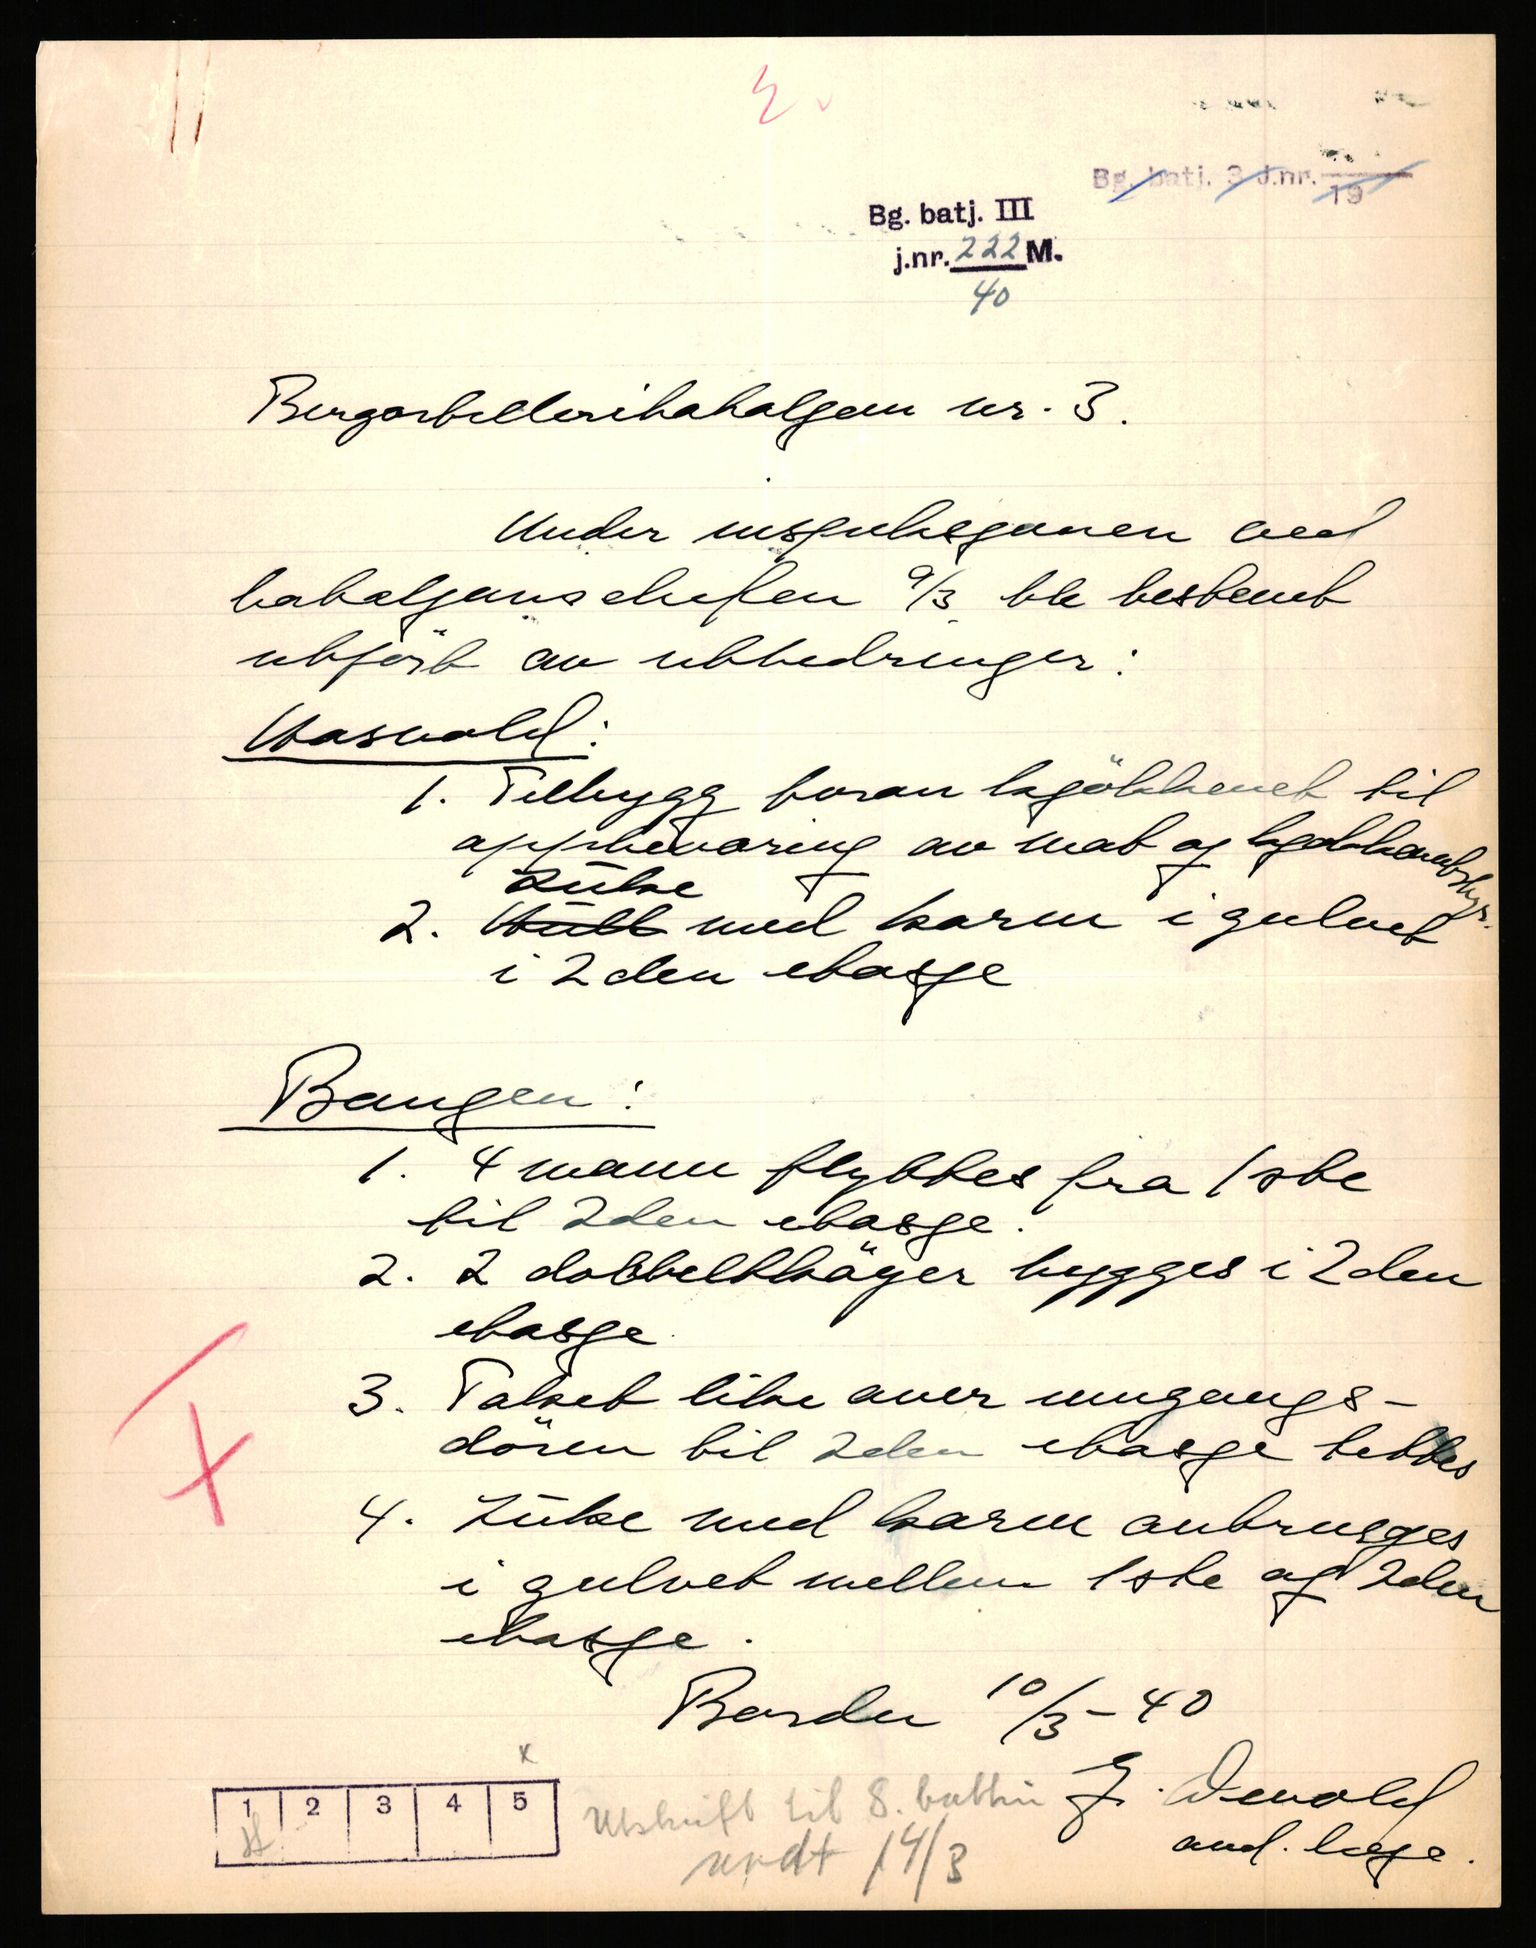 Bg. batj. 3 J.nr.
19
Bg. batj. III
j.nr. 222 M.
40
Bergartilleribataljon nr. 3.
Under inspeksjonen ved
bataljonssjefen 9/3 ble bestemt
utført av utbedringer:
1. Tilbygg foran kjökkenet til
oppbevaring av mat og kjökkenutstyr.
Luke
2. med karm i gulvet
i 2den etasje
Bangen:
1. 4 mann flyttes fra 1ste
til 2den etasje.
2. 2 dobbeltköyer bygges i 2den
etasje
3. Taket like over inngangs-
dören til 2den etasje tettes
4. Luke med karm anbringes
i gulvet mellem 1ste og 2den
etasje.
Bardu 10/3-40
1 2 3 4 5
x
Utskrift til 8. battri
sendt 14/3